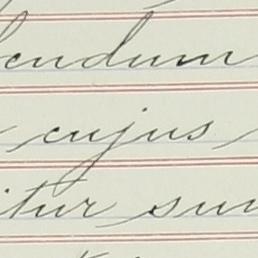 endum
cujus
itur sum